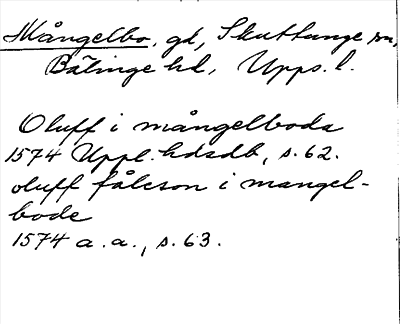 Mångelbo, gd, Skuttunge sn,
Bälinge hd, Upps. l.
Oluff i mångelboda
1574 Uppl. hdsdb, s. 62.
oluff fålcson i mangel-
bode
1574 a. a., s. 63.